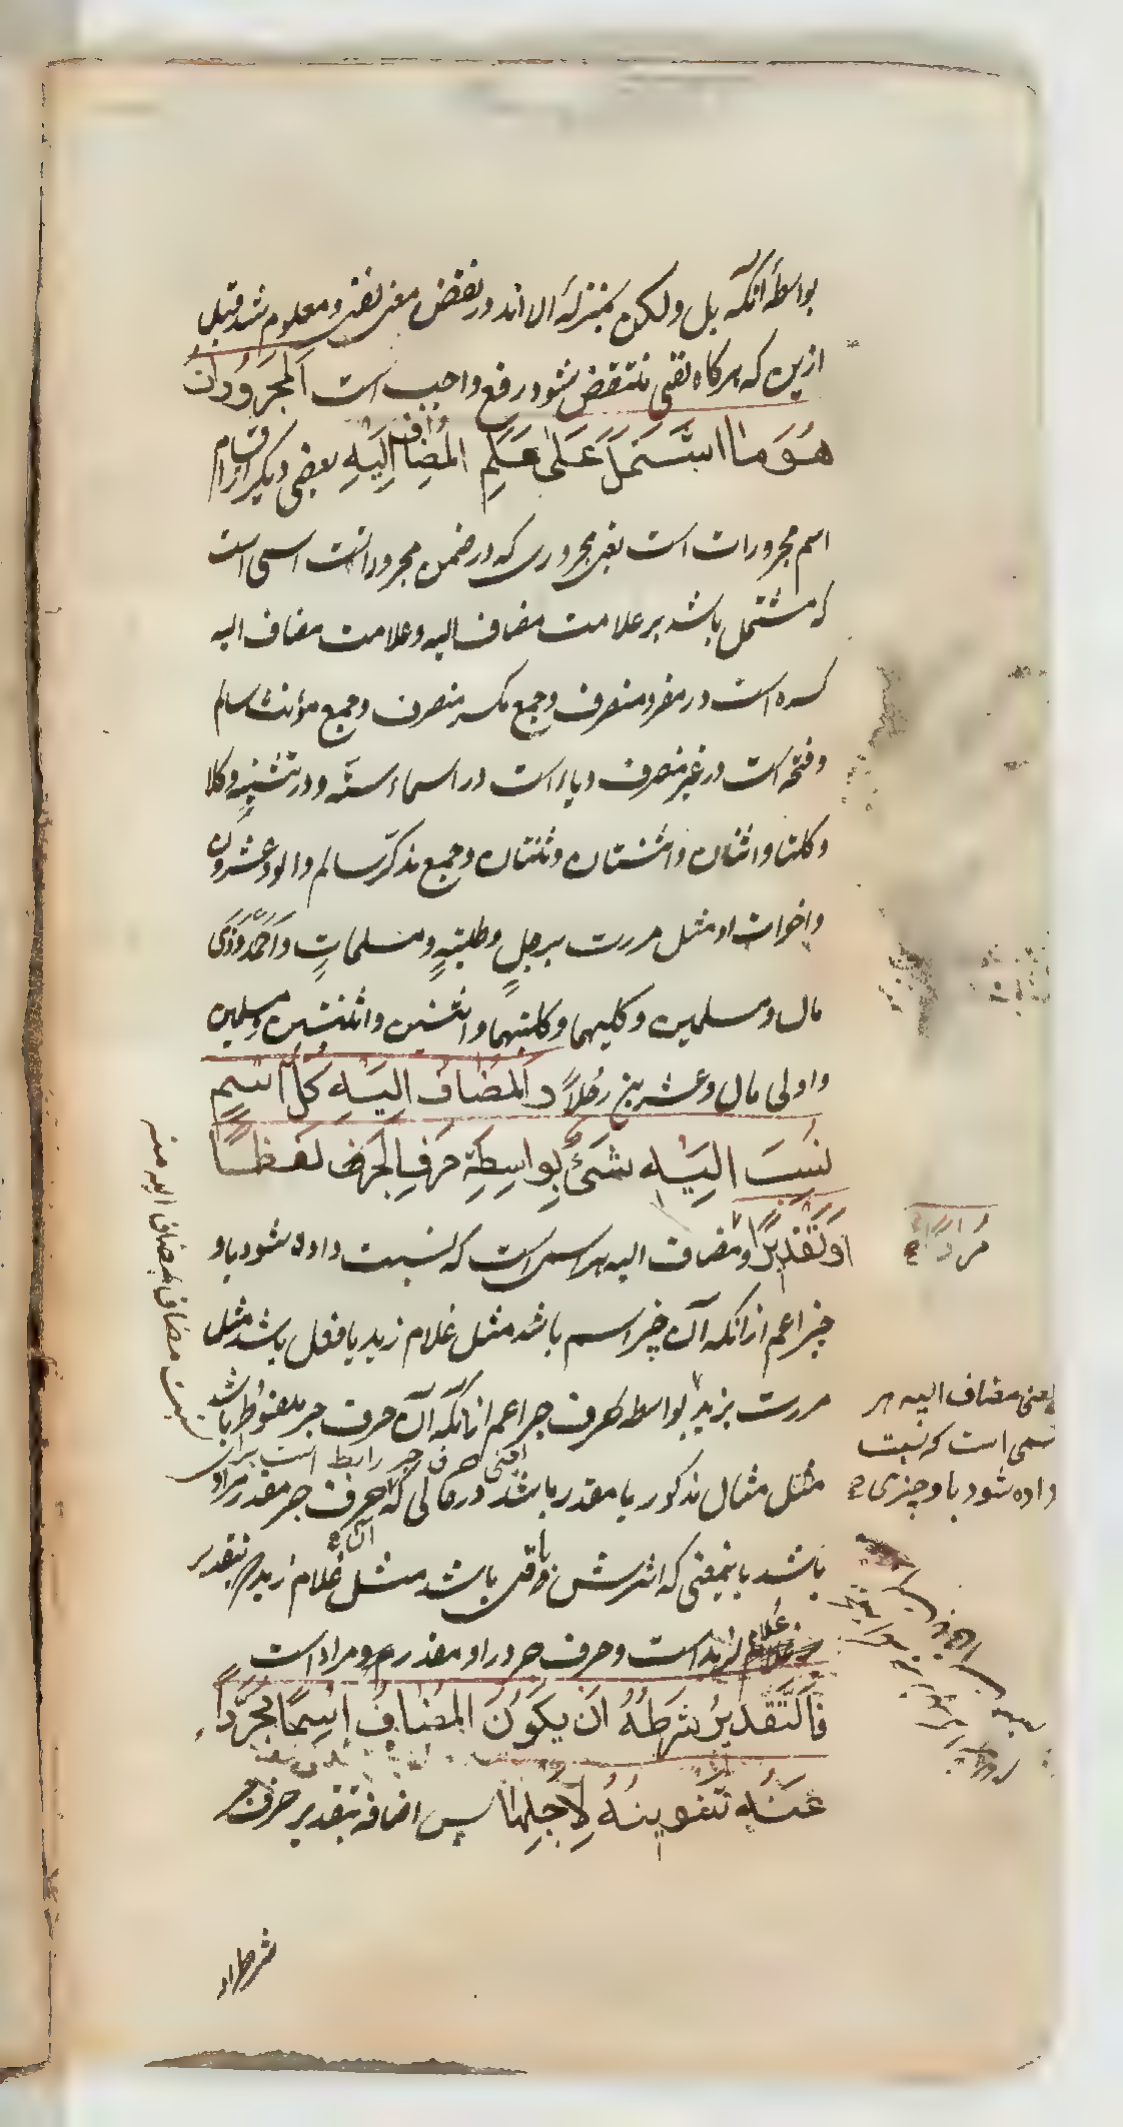 بواسطهٔ آنکه بل ولکن بمنزلهٔ الا اند در نقض معنی نفی و معلوم شد قبل
ازین که هرکاه نفی منتقض شود رفع واجب است اَلمَجرُورَاتُ
هُوَ مَا اشتَمَلَ عَلَی عَلَمِ المُضَافِ اِلَیهِ بعضی دیکر از اقسام
اسم مجرورات است یعنی مجروری که در ضمن مجرورات است اسمی است
که مشتمل باشد بر علامت مضاف الیه و علامت مضاف الیه
کسره است در مفرد منصرف و جمع مکسر منصرف و جمع مؤنث سالم
و فتحه است در غیر منصرف و یاء است در اسماء سته و در تثنیه و کلا
و کلتا و اثنان و اثنتان و ثنتان و جمع مذکّر سالم و الو و عشرون
و اخوات او مثل مررت برجلٍ و طلبةٍ و مسلماتٍ و احمَدَ و ذی
مال و مسلمین و کلیهما و کلتیهما و اثنین و اثنتین و مسلمین
و اولی مال و عشرین رجلاً و اَلمُضَافُ اِلَیهِ کُلُّ اسمٍ
نُسِبَ اِلَیهِ شَیءٌ بِوَاسِطَةِ حَرفِ الجَرِّ لَفظًا
اَو تَقدِیرًا و مضاف الیه هر اسمی است که نسبت داده شود باو
مُرَادًا
چیز اعم از انکه آن چیز اسم باشد مثل غلام زید یا فعل باشد مثل
مررت بزید بواسطه حرف جر اعم از انکه آن حرف جر ملفوظ باشد
یعنی مضاف الیه هر
اسمی است که نسبت
داده شود باو چیزی
مثل مثال مذکور یا مقدر باشد در حالی که حرف جر مقدر مراد
باشد باینمعنی که اثرش باقی باشد مثل غلام زید که بتقدیر
غلام لزید است و حرف جر در او مقدر و مراد است
فَالتَّقدِیرُ شَرطُهُ اَن یَکُونَ المُضَافُ اِسمًا مُجَرَّدًا
عَنهُ تَنوِینُهُ لِاَجلِهَا پس اضافه بتقدیر حرف جر
شرط او